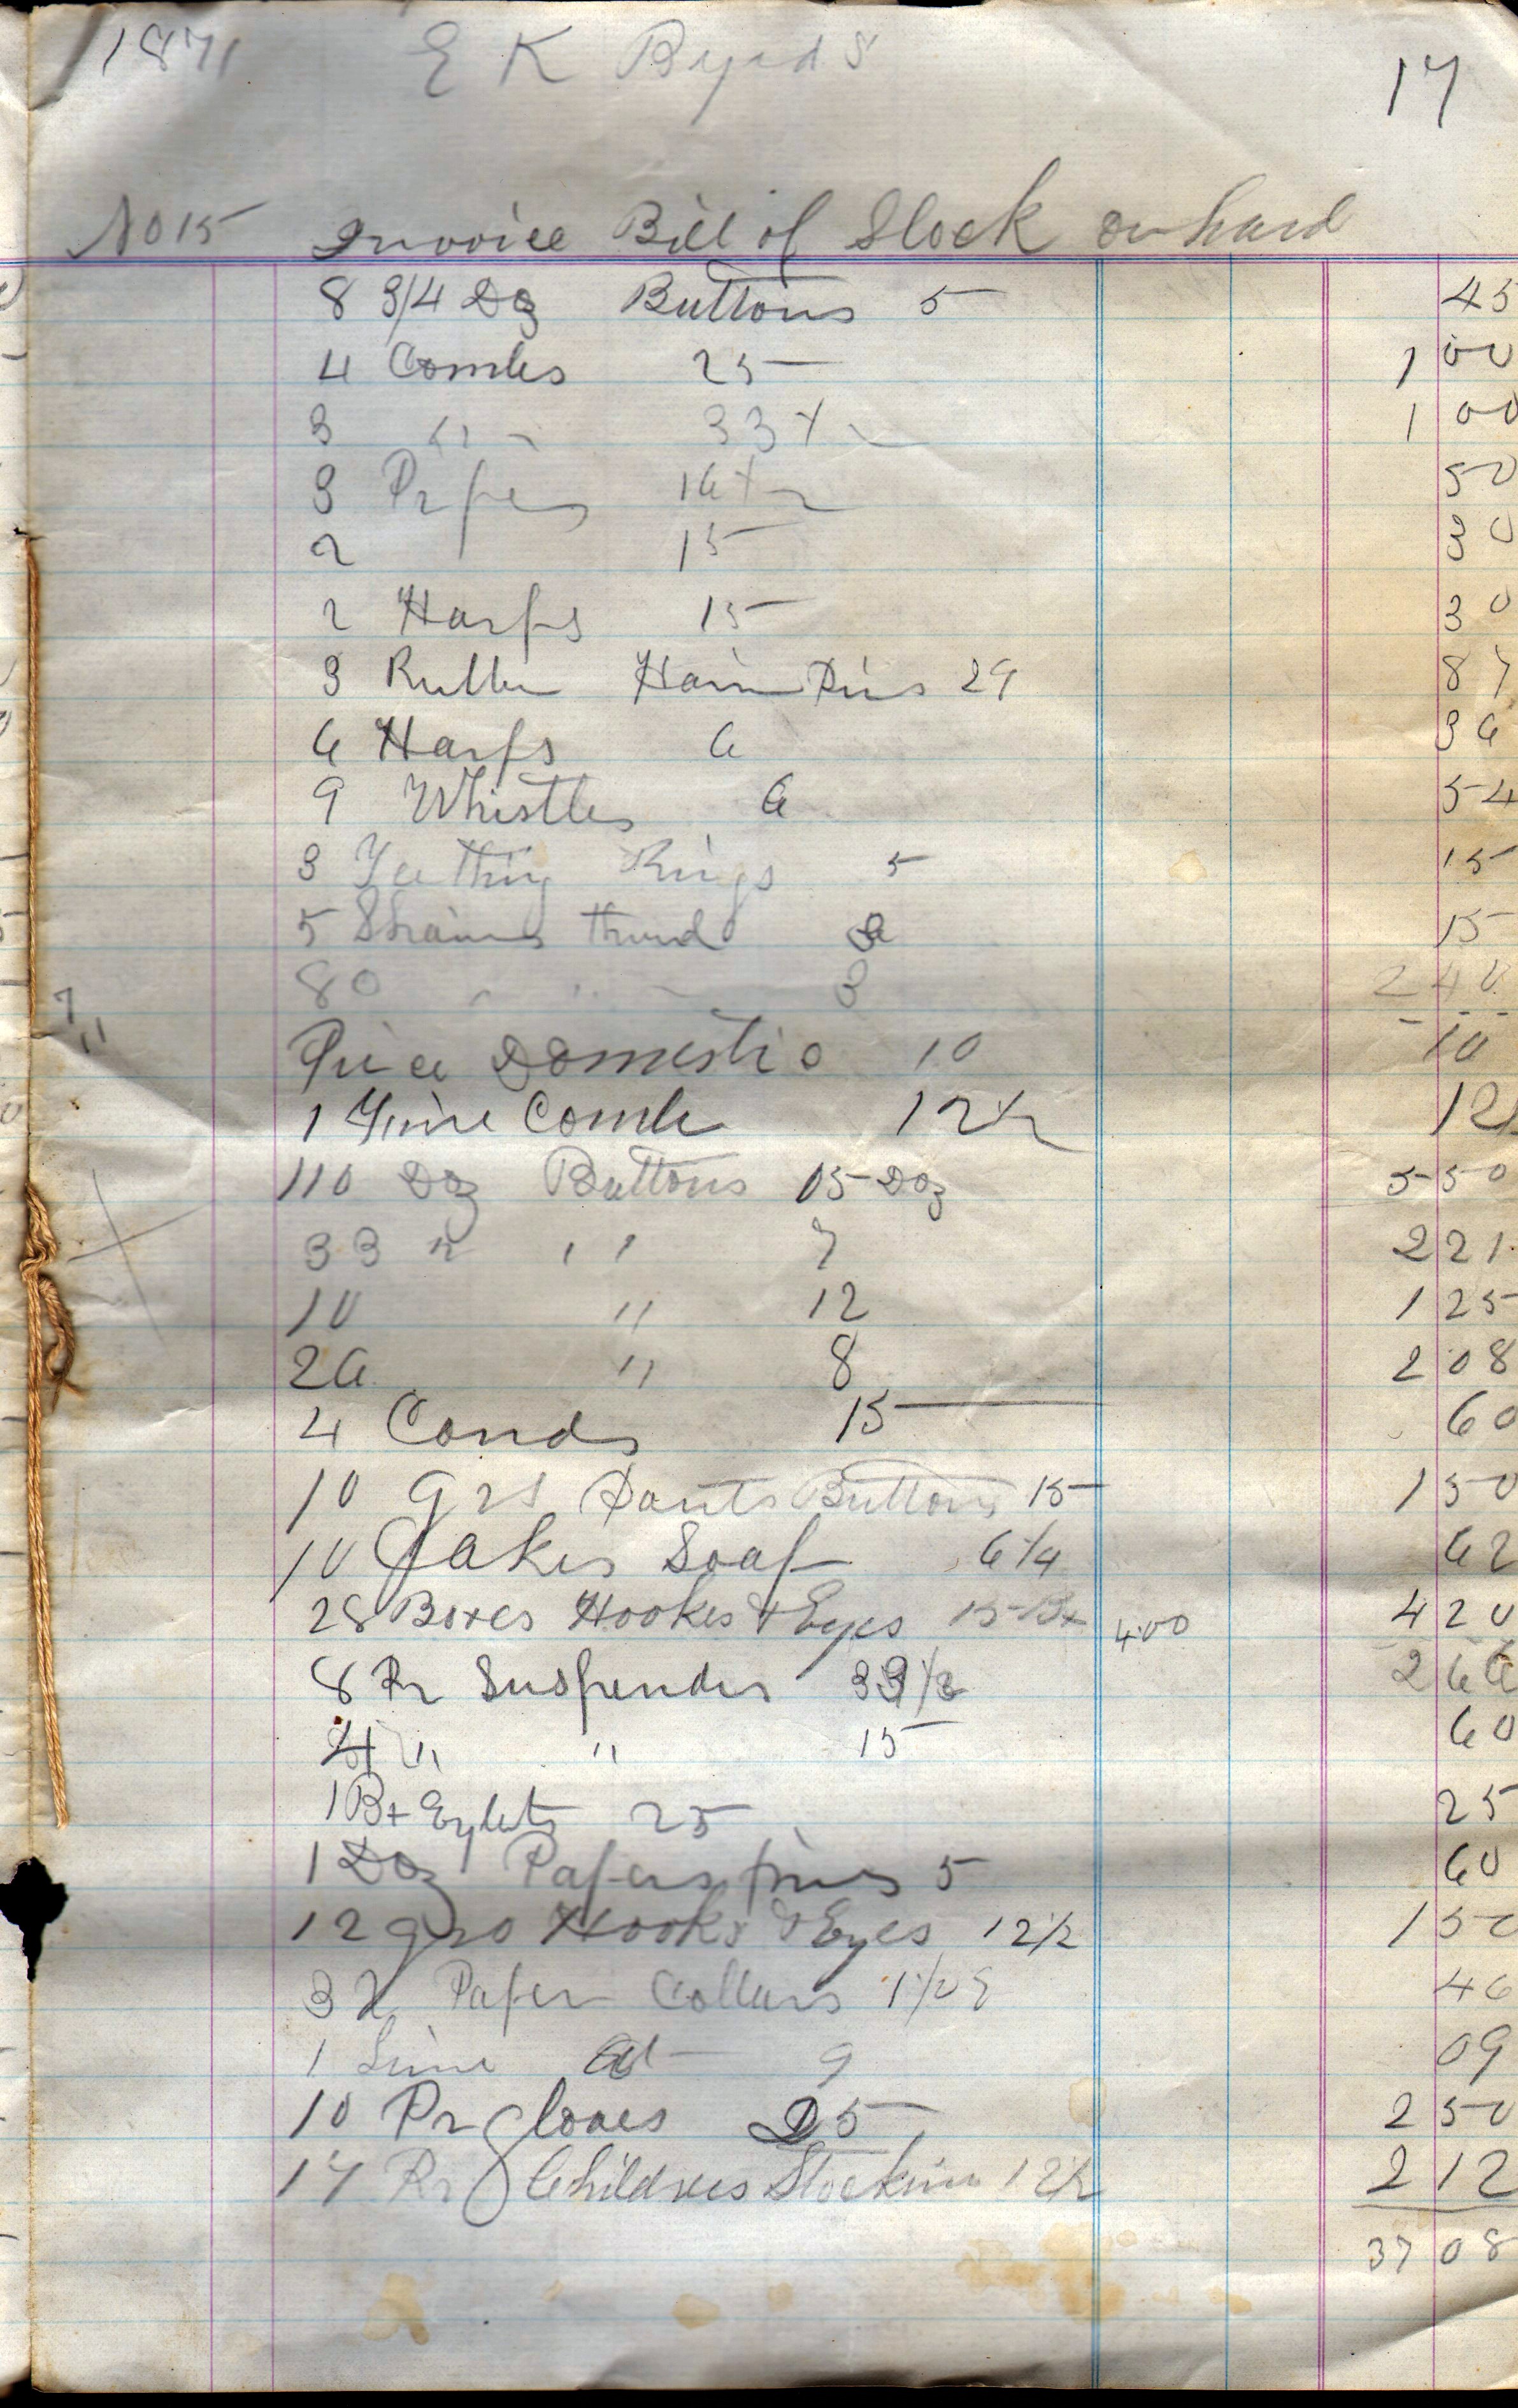 1871 E K Byrds 17
No 15 Invoice Bill of Stock on hand
8 3/4 Doz Buttons 5 45
4 Combs 25 1 00
3 " 33 1/3 1 00
3 Pipes 16 2/3 50
2 15 30
2 Harps 15 30
3 Rubber Hair Pins 29 87
6 Harps 6 36
9 Whistles 6 54
3 Teething Rings 5 15
5 thread 3 15
80 " " 3 2 40
7 "
Piece Domestic 10 10
1 Fine Comb 12 1/2 12
110 Doz Buttons 05 Doz 5 50
33 " " 7 2 21
10 " 12 1 25
26 " 8 2 08
4 15 60
10 grs Pants Buttons 15 1 50
10 Cakes Soap 6 1/4 62
28 Boxes Hookes & Eyes 15 Bx 4.00 4 20
8 Pr Suspenders 33 1/3 2 66
4 " " 15 60
1 Bx Eylets 25 25
1 Doz Papers pins 5 60
12 gro Hooks & Eyes 12 1/2 1 50
32 Paper Collars 46
1 Line at 9 09
10 Pr gloves 25 2 50
17 Pr Childrens Stockins 12 1/2 2 12
37 08